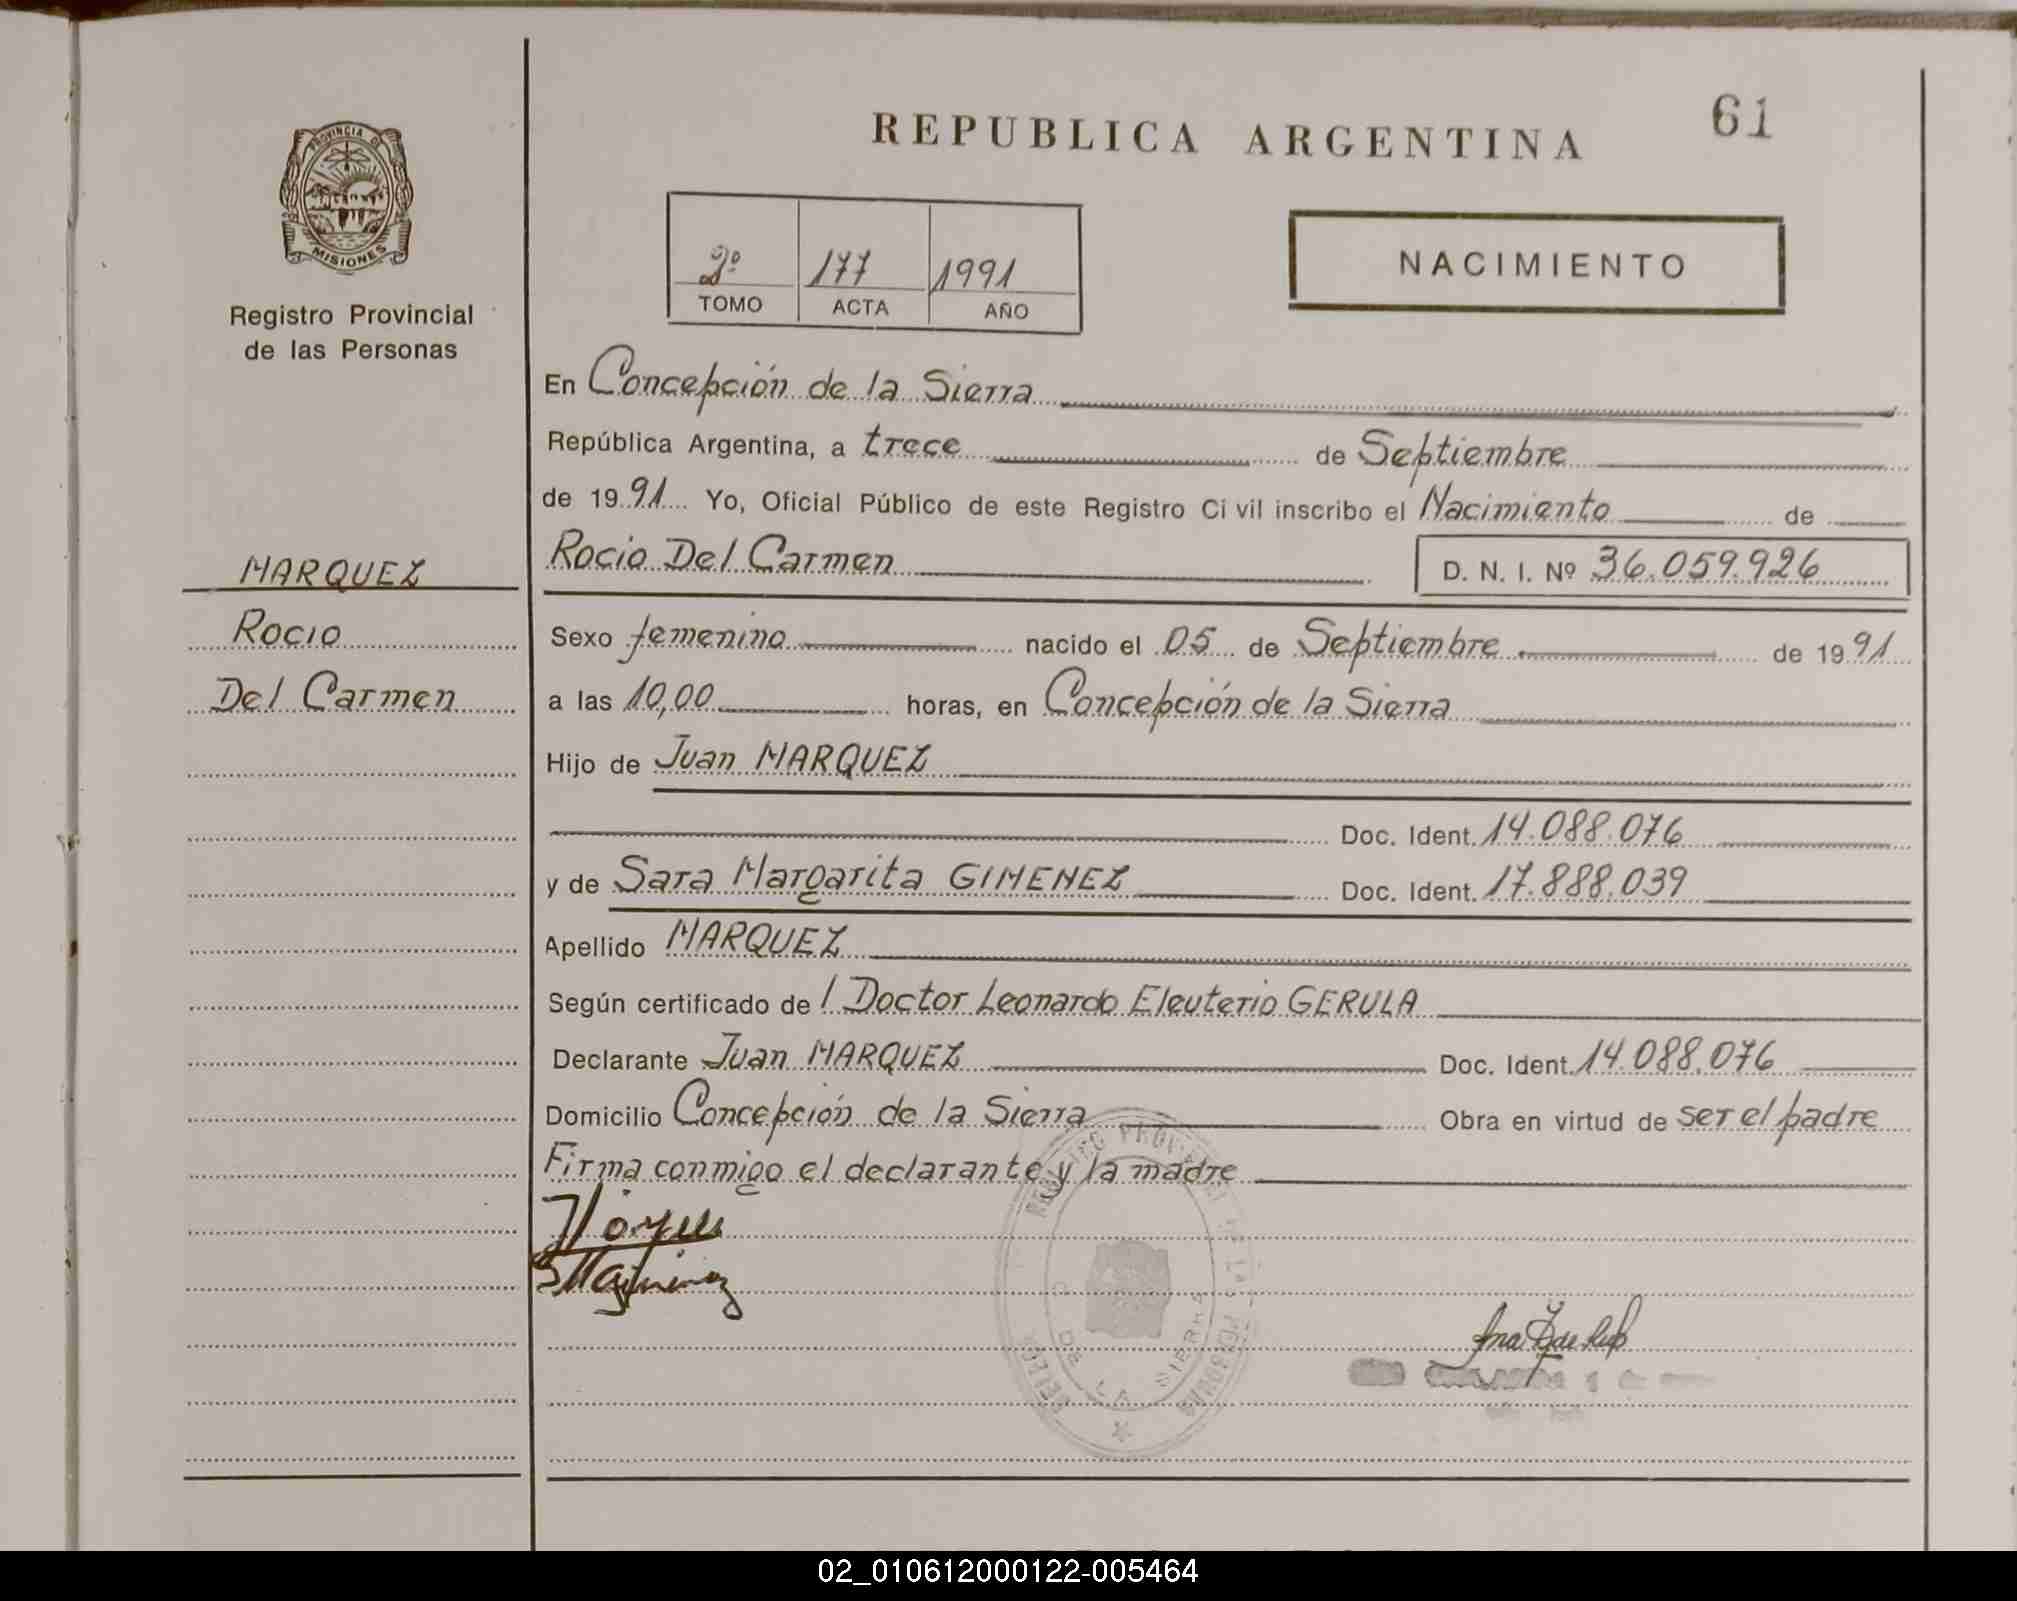 REPUBLICA ARGENTINA
61
PROVINCIA DE
MISIONES
Registro Provincial
de las Personas
2º 177 1991
TOMO ACTA AÑO
NACIMIENTO
En Concepción de la Sierra
República Argentina, a trece de Septiembre
de 1991 Yo, Oficial Público de este Registro Ci vil inscribo el Nacimiento de
MARQUEZ
Rocio
Del Carmen
Rocio Del Carmen D. N. I. Nº 36.059.926
Sexo femenino nacido el 05 de Septiembre de 1991
a las 10,00 horas, en Concepción de la Sierra
Hijo de Juan MARQUEZ
Doc. Ident. 14.088.076
y de Sara Margarita GIMENEZ Doc. Ident. 17.888.039
Apellido MARQUEZ
Según certificado de l Doctor Leonardo Eleuterio GERULA
Declarante Juan MARQUEZ Doc. Ident. 14.088.076
Domicilio Concepción de la Sierra Obra en virtud de ser el padre
Firma conmigo el declarante y la madre
DE LA SIERRA
02_010612000122-005464